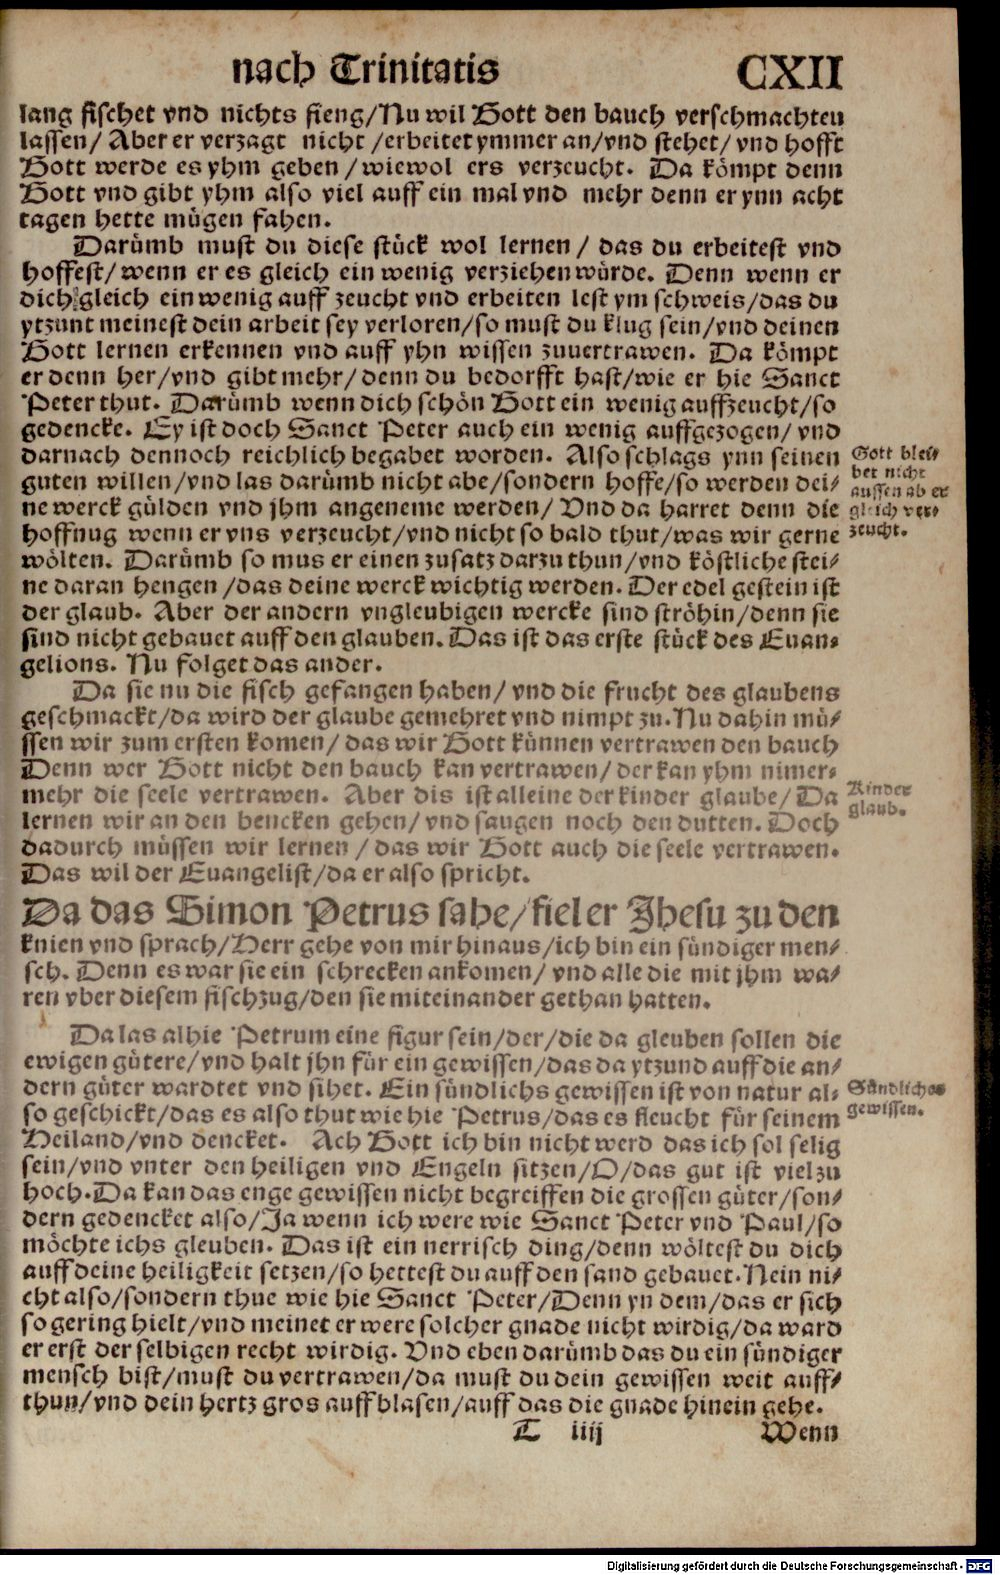 nach Trinitatis CXII
lang fischet vnd nichts fieng/Nu wil Gott den bauch verschmachten
lassen/ Aber er verzagt nicht /erbeitet ymmer an/vnd stehet/ vnd hofft
Gott werde es yhm geben /wiewol ers verzeucht. Da kömpt denn
Gott vnd gibt yhm also viel auff ein mal vnd mehr denn er ynn acht
tagen hette mügen fahen.
Darümb must du diese stück wol lernen / das du erbeitest vnd
hoffest/ wenn er es gleich ein wenig verziehen würde. Denn wenn er
dich gleich ein wenig auff zeucht vnd erbeiten lest ym schweis/das du
ytzunt meinest dein arbeit sey verloren/so must du klug sein/vnd deinen
Gott lernen erkennen vnd auff yhn wissen zuuertrawen. Da kömpt
er denn her/vnd gibt mehr/ denn du bedorfft hast/wie er hie Sanct
Peter thut. Darümb wenn dich schön Gott ein wenig auffzeucht/so
gedencke. Ey ist doch Sanct Peter auch ein wenig auffgezogen/ vnd
darnach dennoch reichlich begabet worden. Also schlags ynn seinen
guten willen/vnd las darümb nicht abe/sondern hoffe/so werden dei-
ne werck gülden vnd jhm angeneme werden/ Vnd da harret denn die
hoffnug wenn er vns verzeucht/vnd nicht so bald thut/was wir gerne
wölten. Darümb so mus er einen zusatz darzu thun/vnd köstliche stei-
ne daran hengen /das deine werck wichtig werden. Der edel gestein ist
der glaub. Aber der andern vngleubigen wercke sind ströhin/denn sie
sind nicht gebauet auff den glauben. Das ist das erste stück des Euan-
gelions. Nu folget das ander.
Gott blei-
bet nicht
aussen ab er
gleich ver-
zeucht.
Da sie nu die fisch gefangen haben/ vnd die frucht des glaubens
geschmackt/da wird der glaube gemehret vnd nimpt zu. Nu dahin mü-
ssen wir zum ersten komen/ das wir Gott künnen vertrawen den bauch
Denn wer Gott nicht den bauch kan vertrawen/ der kan yhm nimer-
mehr die seele vertrawen. Aber dis ist alleine der kinder glaube/ Da
lernen wir an den bencken gehen/ vnd saugen noch den dutten. Doch
dadurch müssen wir lernen / das wir Gott auch die seele vertrawen.
Das wil der Euangelist/da er also spricht.
Kinder
glaub.
Da das Simon Petrus sahe/fiel er Jhesu zu den
knien vnd sprach/Herr gehe von mir hinaus/ich bin ein sündiger men-
sch. Denn es war sie ein schrecken ankomen/ vnd alle die mit jhm wa-
ren vber diesem fischzug/den sie miteinander gethan hatten.
Da las alhie Petrum eine figur sein/der/die da gleuben sollen die
ewigen gütere/vnd halt jhn für ein gewissen/das da ytzund auff die an-
dern güter wardtet vnd sihet. Ein sündlichs gewissen ist von natur al-
so geschickt/das es also thut wie hie Petrus/das es fleucht für seinem
Heiland/vnd dencket. Ach Gott ich bin nicht werd das ich sol selig
sein/vnd vnter den heiligen vnd Engeln sitzen/O/das gut ist viel zu
hoch. Da kan das enge gewissen nicht begreiffen die grossen güter/son-
dern gedencket also/Ja wenn ich were wie Sanct Peter vnd Paul/so
möchte ichs gleuben. Das ist ein nerrisch ding/denn wöltest du dich
auff deine heiligkeit setzen/so hettest du auff den sand gebauet. Nein ni-
cht also/sondern thue wie hie Sanct Peter/Denn yn dem/das er sich
so gering hielt/vnd meinet er were solcher gnade nicht wirdig/da ward
er erst der selbigen recht wirdig. Vnd eben darümb das du ein sündiger
mensch bist/must du vertrawen/da must du dein gewissen weit auff-
thun/vnd dein hertz gros auff blasen/auff das die gnade hinein gehe.
Sündliches
gewissen.
T iiij Wenn
Digitalisierung gefördert durch die Deutsche Forschungsgemeinschaft - DFG